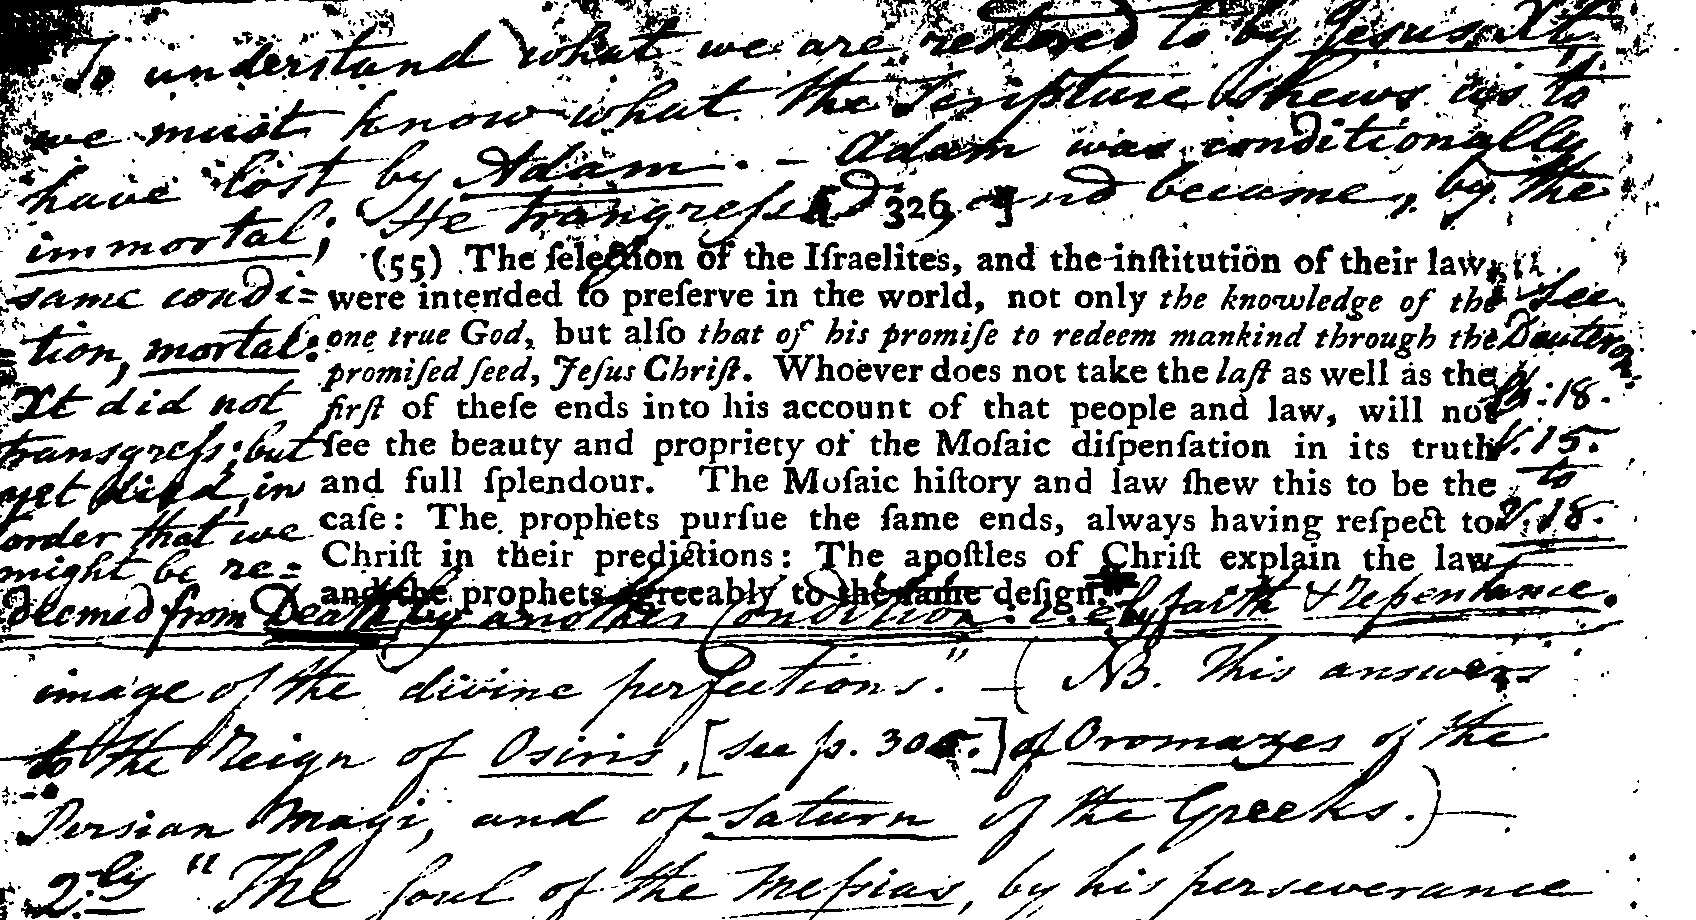 To understand what we are restored to by Jesus Xt,
we must know what the Scripture shews us to
have lost by Adam. – Adam was conditionally
immortal; He transgreſs'd, and became, by the
[ 326 ]
same condi=
tion, mortal:
Xt did not
transgreſs; but
yet died, in
order that we
might be re=
deemed from Death by another Condition: i.e. by faith & repentance.
(55) The ſelection of the Iſraelites, and the inſtitution of their law,
were intended to preſerve in the world, not only the knowledge of the
one true God, but alſo that of his promiſe to redeem mankind through the
promiſed ſeed, Jeſus Chriſt. Whoever does not take the laſt as well as the
firſt of theſe ends into his account of that people and law, will not
ſee the beauty and propriety of the Moſaic diſpenſation in its truth
and full ſplendour. The Moſaic hiſtory and law ſhew this to be the
caſe: The prophets purſue the ſame ends, always having reſpect to
Chriſt in their predictions: The apoſtles of Chriſt explain the law
and the prophets agreeably to the ſame deſign.
See
Deuteron.
18.
V. 15.
to
V. 18.
image of the divine perfections." – (NB. This answers
to the Reign of Osiris, [see p. 305.] of Oromazes of the
Persian Magi, and of Saturn of the Greeks.) –
2.ly "The soul of the Meſsias, by his perseverance